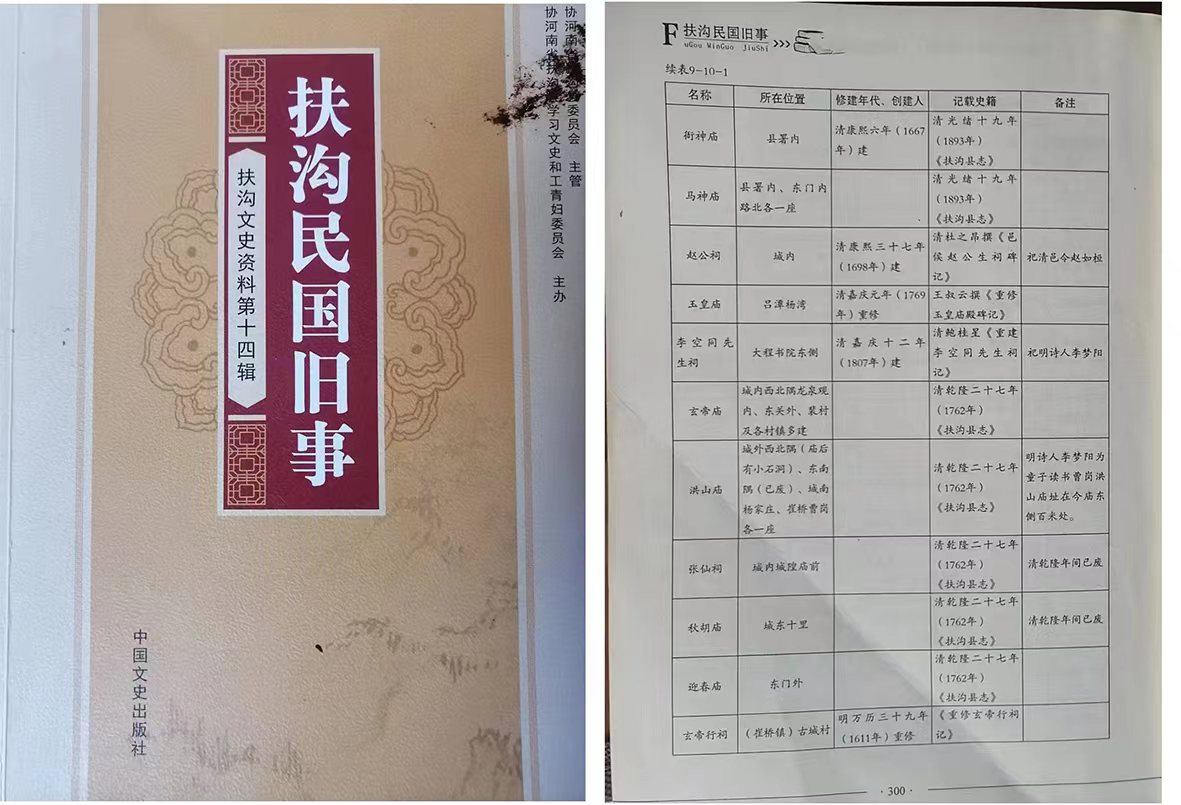 扶沟民国旧事
扶沟文史资料第十四辑
中国文史出版社
委员会 主管
学习文史和工青妇委员会 主办
F扶沟民国旧事
uGou MinGuo JiuShi
续表9-10-1
名称 所在位置 修建年代、创建人 记载史籍 备注
衙神庙 县署内 清康熙六年（1667年）建 清光绪十九年（1893年）《扶沟县志》
马神庙 县署内、东门内路北各一座 清光绪十九年（1893年）《扶沟县志》
赵公祠 城内 清康熙三十七年（1698年）建 清杜之昂撰《邑侯赵公生祠碑记》 祀清邑令赵如桓
玉皇庙 吕潭杨湾 清嘉庆元年（1769年）重修 王叔云撰《重修玉皇庙殿碑记》
李空同先生祠 大程书院东侧 清嘉庆十二年（1807年）建 清鲍桂星《重建李空同先生祠记》 祀明诗人李梦阳
玄帝庙 城内西北隅龙泉观内、东关外、裴村及各村镇多建 清乾隆二十七年（1762年）《扶沟县志》
洪山庙 城外西北隅（庙后有小石洞）、东南隅（已废）、城南杨家庄、崔桥曹岗各一座 清乾隆二十七年（1762年）《扶沟县志》 明诗人李梦阳为童子读书曹岗洪山庙址在今庙东侧百米处。
张仙祠 城内城隍庙前 清乾隆二十七年（1762年）《扶沟县志》 清乾隆年间已废
秋胡庙 城东十里 清乾隆二十七年（1762年）《扶沟县志》 清乾隆年间已废
迎春庙 东门外 清乾隆二十七年（1762年）《扶沟县志》
玄帝行祠 （崔桥镇）古城村 明万历三十九年（1611年）重修 《重修玄帝行祠记》
· 300 ·